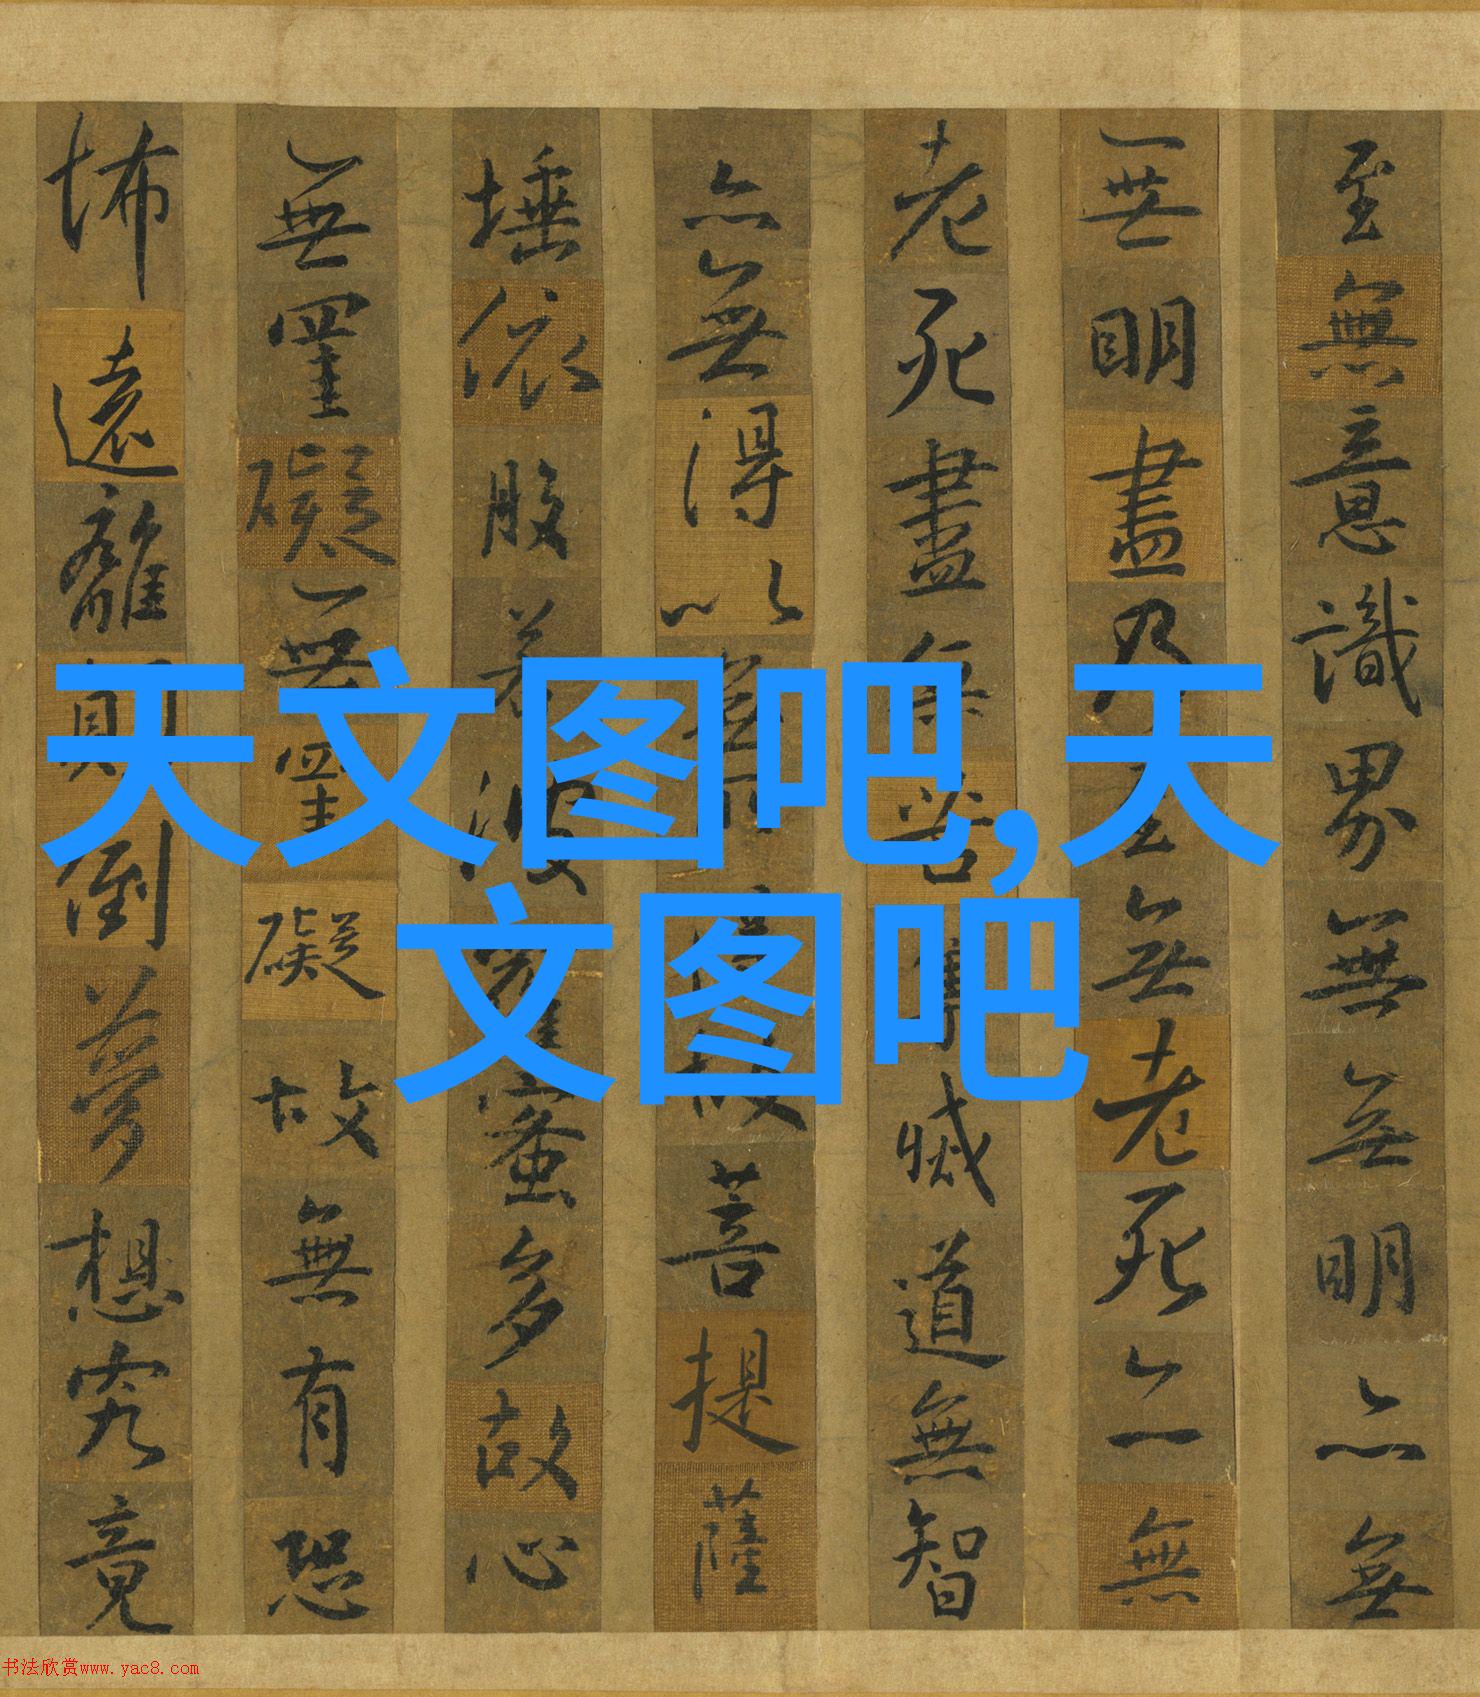 至無意識界無無明亦無
無明盡乃至無老死亦無
老死盡無苦集滅道無智
亦無得以無所得故菩提薩
埵依般若波羅蜜多故心
無罣礙無罣礙故無有恐
怖遠離顛倒夢想究竟
天文图吧,天
文图吧
书法欣赏www.yac8.com